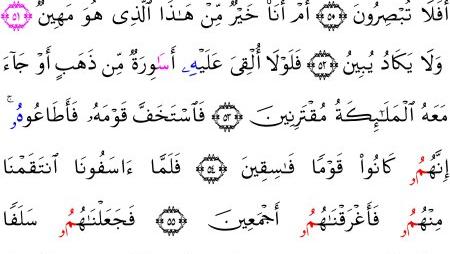 أَفَلَا تُبْصِرُونَ ۝٥٠ أَمْ أَنَا۠ خَيْرٌ مِّنْ هَـٰذَا ٱلَّذِى هُوَ مَهِينٌ ۝٥١
وَلَا يَكَادُ يُبِينُ ۝٥٢ فَلَوْلَآ أُلْقِىَ عَلَيْهِۦ أَسَـٰوِرَةٌ مِّن ذَهَبٍ أَوْ جَآءَ
مَعَهُ ٱلْمَلَـٰٓئِكَةُ مُقْتَرِنِينَ ۝٥٣ فَٱسْتَخَفَّ قَوْمَهُۥ فَأَطَاعُوهُۥ ۚ
إِنَّهُمُۥ كَانُوا۟ قَوْمًا فَـٰسِقِينَ ۝٥٤ فَلَمَّآ ءَاسَفُونَا ٱنتَقَمْنَا
مِنْهُمُۥ فَأَغْرَقْنَـٰهُمُۥٓ أَجْمَعِينَ ۝٥٥ فَجَعَلْنَـٰهُمُۥ سَلَفًا